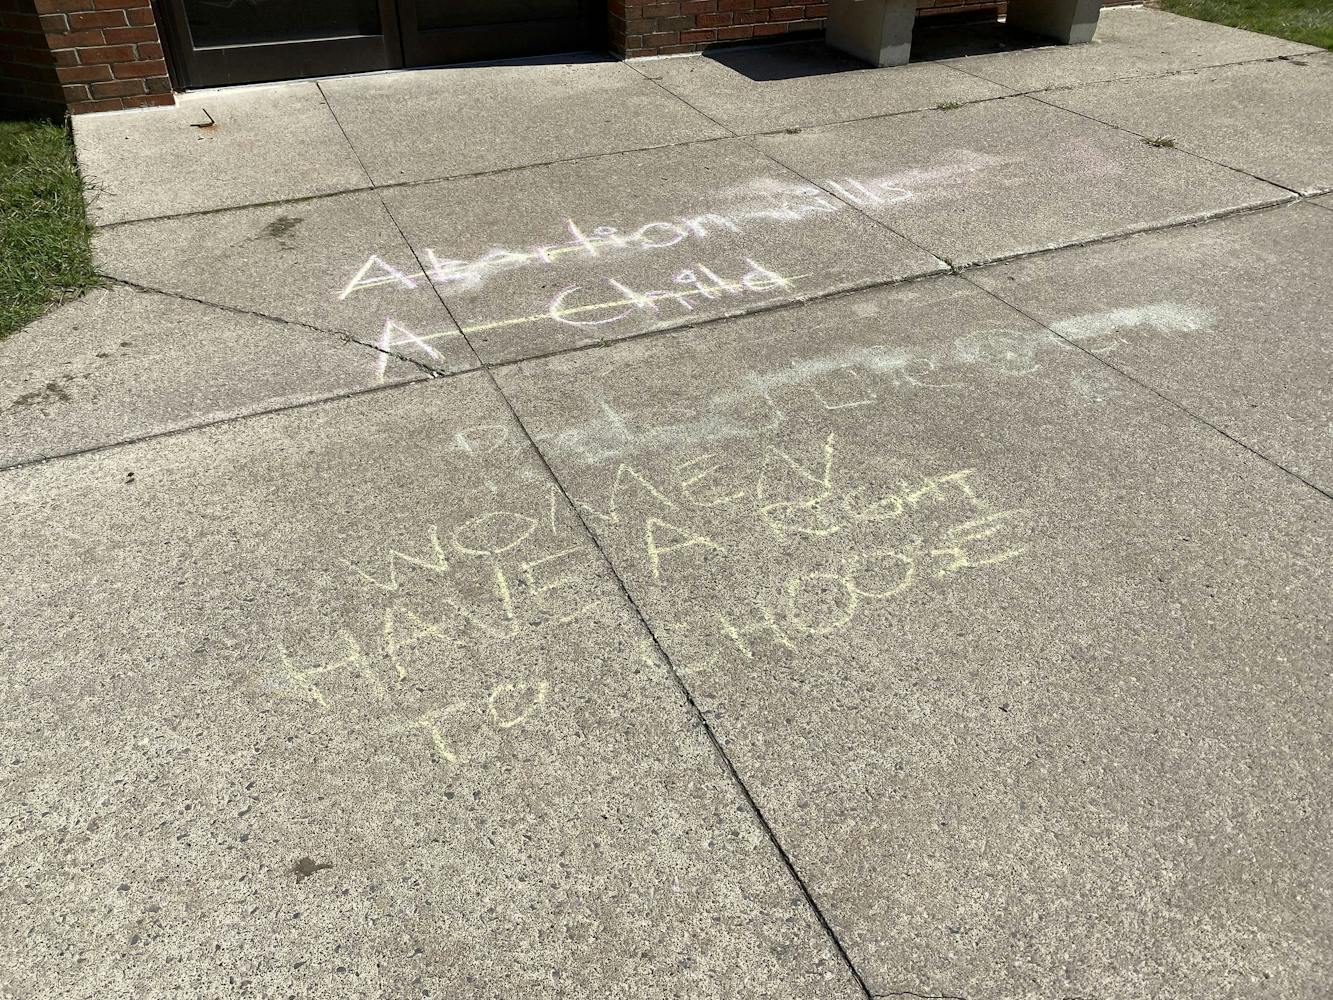 Abortion kills
A Child
WOMEN
HAVE A RIGHT
TO CHOOSE